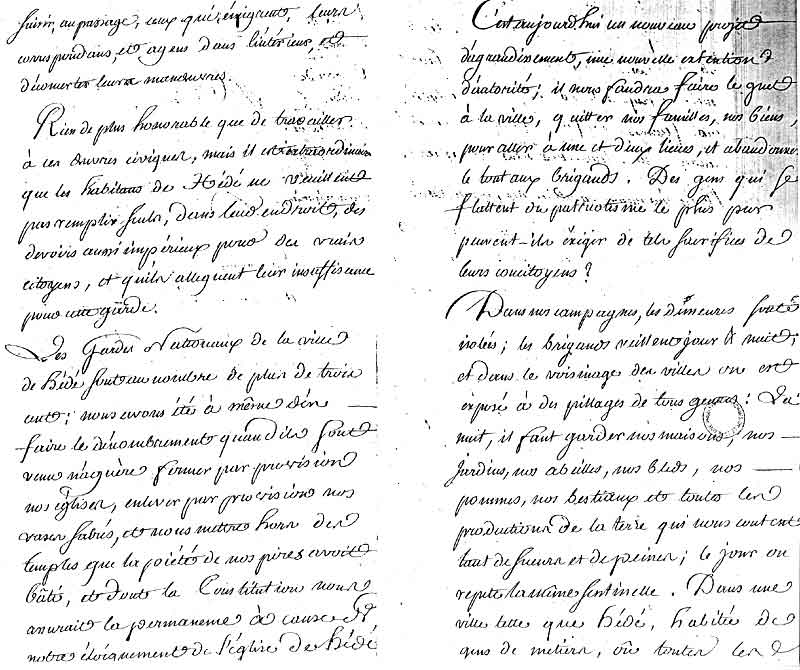 suivre, au passage, ceux qui émigrent, leurs
correspondans, et agens dans l'intérieur, et
déconcerter leurs manœuvres.
Rien de plus honorable que de travailler
à ces œuvres civiques, mais il est extraordinaire
que les habitans de Hédé ne veuillent
pas remplir seuls, dans leur endroit, des
devoirs aussi impérieux pour de vrais
citoyens, et qu'ils alleguent leur insuffisance
pour cette garde.
Les Gardes Nationaux de la ville
de Hédé sont au nombre de plus de trois
cents; nous avons été à même d'en
faire le dénombrement quand ils sont
venu naguère fermer par provision
nos églises, enlever par provision nos
vases sacrés, et nous mettre hors des
temples que la piété de nos pères avoit
bâtis, et dont la Constitution nous
assurait la permanence à cause de
notre éloignement de l'église de Hédé
C'est aujourd'hui un nouveau projet
d'agrandissement, une nouvelle extention
d'autorité; il nous faudra faire le guet
à la ville, quitter nos familles, nos biens,
pour aller à une et deux lieues, et abandonner
le tout aux brigands. Des gens qui se
flattent du patriotisme le plus pur
peuvent-ils éxiger de tels sacrifices de
leurs concitoyens?
Dans nos campagnes, les demeures sont
isolées; les brigands veillent jour & nuit;
et dans le voisinage des villes on est
exposé à des pillages de tous genres: La
nuit, il faut garder nos maisons, nos
jardins, nos abeilles, nos bleds, nos
pommes, nos bestiaux et toutes les
productions de la terre qui nous coutent
tant de sueurs et de peines; le jour on
repute la même sentinelle. Dans une
ville telle que Hédé, habitée de
gens de métiers, où toutes les